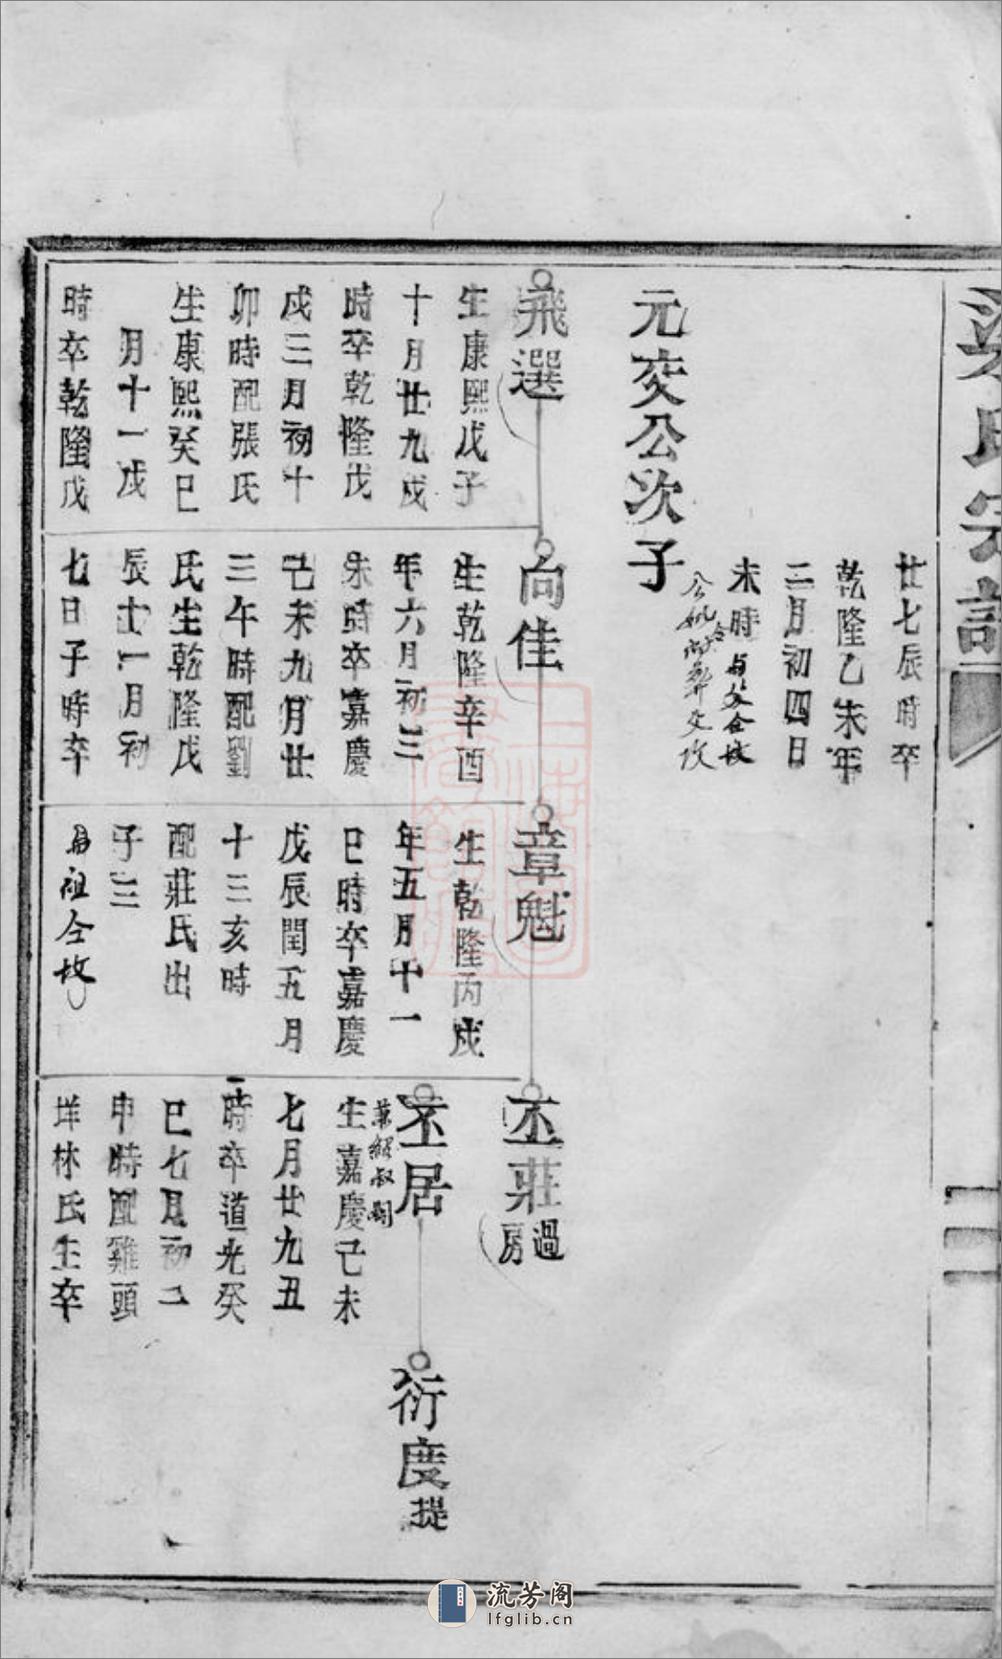 氏宗譜
廿七辰時卒
乾隆乙未年
二月初四日
未時
元交公次子
飛選
生康熙戊子
十月廿九戌
時卒乾隆戊
戌三月初十
卯時配張氏
生康熙癸巳
月十一戌
時卒乾隆戊
向佳
生乾隆辛酉
年六月初三
未時卒嘉慶
己未九月廿
三午時配劉
氏生乾隆戊
辰十一月初
七日子時卒
章魁
生乾隆丙戌
年五月十一
巳時卒嘉慶
戊辰閏五月
十三亥時
配莊氏出
子三
祖仝坟
丕莊過房
丕居
生嘉慶己未
七月廿九丑
時卒道光癸
巳七月初二
申時配雞頭
垟林氏生卒
衍度提
流芳阁
lfglib.cn